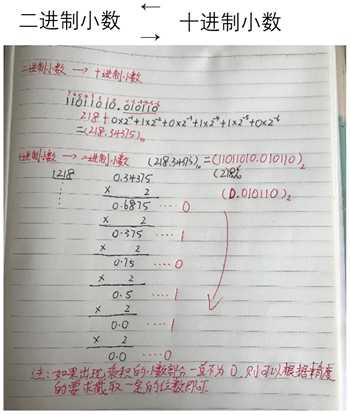 二进制小数 ← → 十进制小数
二进制小数 → 十进制小数
11011010.010110
218+0×2⁻¹+1×2⁻²+0×2⁻³+1×2⁻⁴+1×2⁻⁵+0×2⁻⁶
=(218.34375)₁₀
十进制小数 → 二进制小数 (218.34375)₁₀=(11011010.010110)₂
1218 0.34375 (218)₁₀
× 2 (0.010110)₂
0.6875 ···· 0
× 2
0.375 ···· 1
× 2
0.75 ···· 0
× 2
0.5 ···· 1
× 2
0.0 ···· 1
× 2
0.0 ···· 0
注:如果出现乘积的小数部分一直不为0,则可以根据精度
的要求截取一定的位数即可